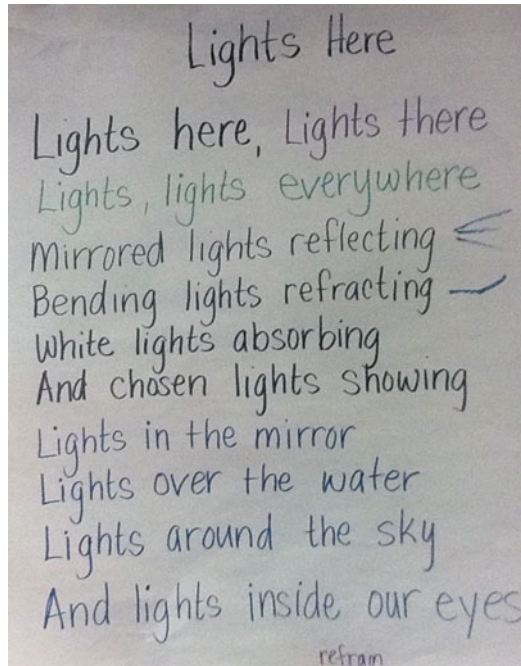 Lights Here
Lights here, Lights there
Lights, lights everywhere
Mirrored lights reflecting
Bending lights refracting
White lights absorbing
And chosen lights showing
Lights in the mirror
Lights over the water
Lights around the sky
And lights inside our eyes
refrain